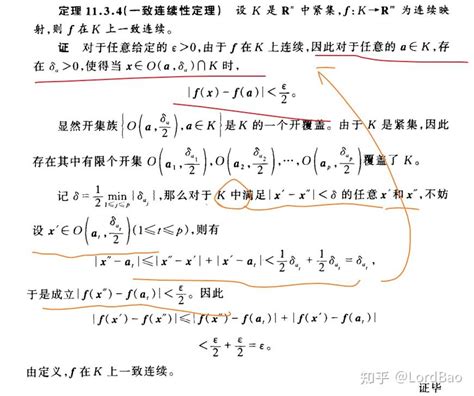 定理 11.3.4(一致连续性定理) 设 K 是 Rⁿ 中紧集, f: K→Rᵐ 为连续映
射,则 f 在 K 上一致连续。
证 对于任意给定的 ε>0,由于 f 在 K 上连续,因此对于任意的 a∈K,存
在 δₐ>0,使得当 x∈O(a,δₐ)∩K 时,
|f(x)-f(a)|<ε/2。
显然开集族{O(a, δₐ/2), a∈K}是 K 的一个开覆盖。由于 K 是紧集,因此
存在其中有限个开集 O(a₁, δ_{a₁}/2), O(a₂, δ_{a₂}/2), ⋯, O(a_p, δ_{a_p}/2)覆盖了 K。
记 δ=1/2 min_{1≤j≤p}|δ_{a_j}|,那么对于 K 中满足|x′-x″|<δ 的任意 x′和 x″,不妨
设 x′∈O(a_t, δ_{a_t}/2)(1≤t≤p),则有
|x″-a_t|≤|x″-x′|+|x′-a_t|<1/2 δ_{a_t}+1/2 δ_{a_t}=δ_{a_t},
于是成立|f(x″)-f(a_t)|<ε/2。因此
|f(x′)-f(x″)|≤|f(x″)-f(a_t)|+|f(x′)-f(a_t)|
<ε/2+ε/2=ε。
由定义, f 在 K 上一致连续。
证毕
知乎 @LordBao